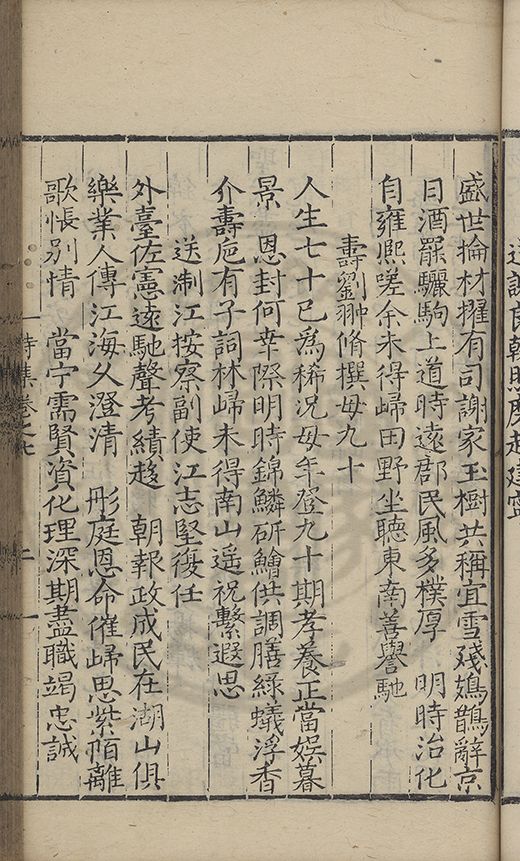 盛世掄材擢有司謝家玉樹共稱宜雪殘鳷鵲辭京
日酒罷驪駒上道時遠郡民風多樸厚　明時治化
自雍熙嗟余未得歸田野坐聽東南善譽馳
壽劉翀脩撰母九十
人生七十已為稀况母年登九十期孝養正當娛暮
景　恩封何幸際明時錦鱗斫鱠供調膳綠蟻浮香
介壽巵有子詞林歸未得南山遥祝繫遐思
送淛江按察副使江志堅復任
外臺佐憲遠馳聲考績趍　朝報政成民在湖山俱
樂業人傳江海久澄清　彤庭恩命催歸思紫陌離
歌悵別情　當宁需賢資化理深期盡職竭忠誠
詩集卷之七　二